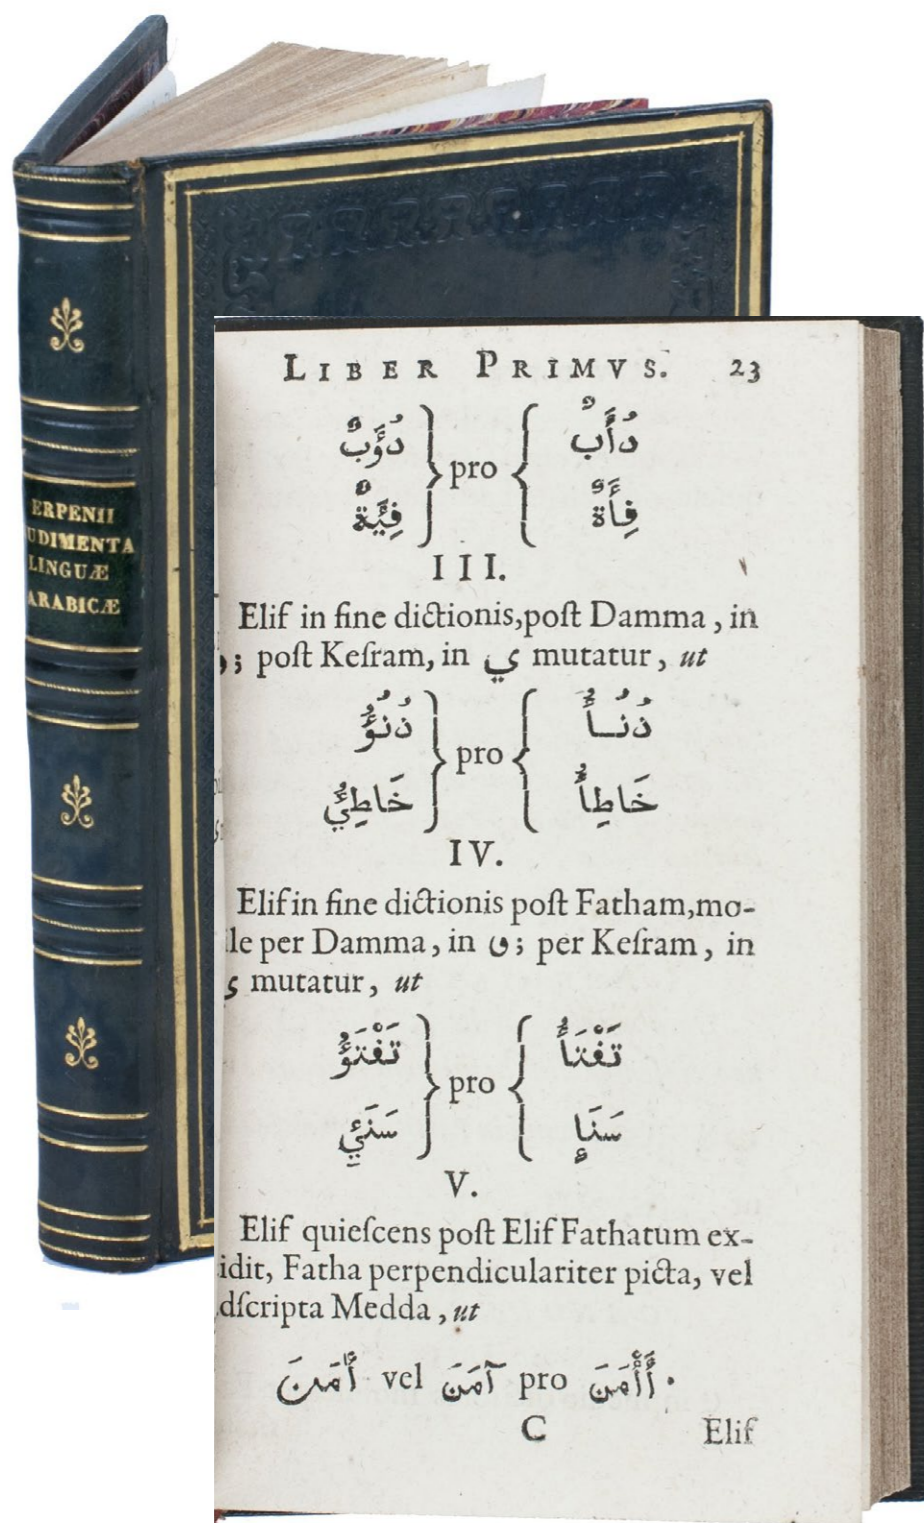 ERPENII
UDIMENTA
LINGUÆ
ARABICÆ
LIBER PRIMVS. 23
دُؤَبٌ } pro { دُأَبٌ
فِئَةٌ } pro { فِأَةٌ
III.
Elif in fine dictionis, poſt Damma, in
و; poſt Keſram, in ي mutatur, ut
دُنُؤُ } pro { دُنُـأُ
خَاطِئُ } pro { خَاطِأُ
IV.
Elif in fine dictionis poſt Fatham, mo-
le per Damma, in و; per Keſram, in
ي mutatur, ut
تَفْتَؤُ } pro { تَفْتَأُ
سَنَئِ } pro { سَنَإِ
V.
Elif quieſcens poſt Elif Fathatum ex-
idit, Fatha perpendiculariter picta, vel
dſcripta Medda, ut
أٰمَنَ vel آمَنَ pro أَأْمَنَ.
C Elif